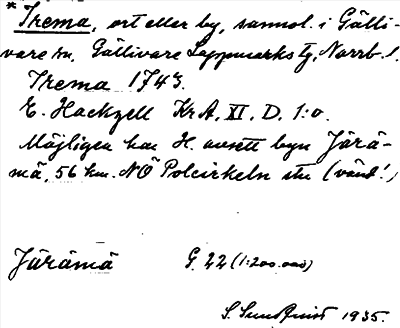 * Trema, ort eller by, sannol. i Gälli-
vare sn, Gällivare Lappmarks tg, Norrb. l.
Trema 1743.
E. Hackzell KrA, XI, D, 1:o.
Möjligen har H. avsett byn Järä-
mä, 56 km. NÖ Polcirkeln stn (vänd!)
Järämä G. 22 (1:200.000)
S. Sundqvist 1935.